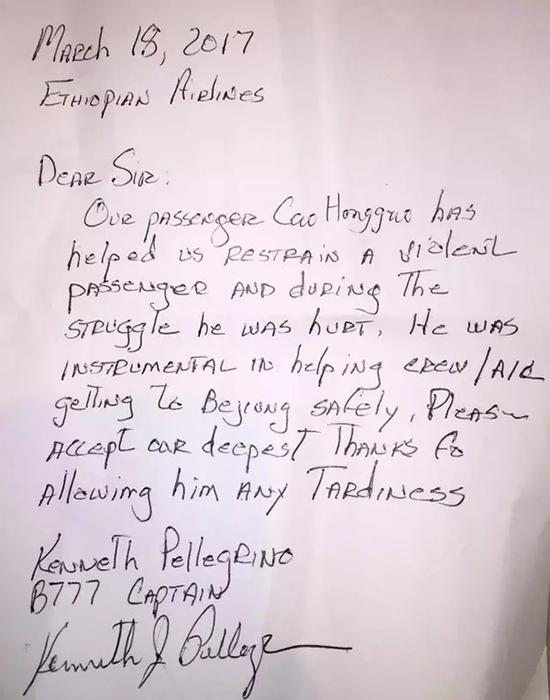 March 18, 2017
Ethiopian Airlines
Dear Sir:
Our passenger Cao Hongguo has
helped us restrain a violent
passenger and during the
struggle he was hurt. He was
instrumental in helping crew/A/C
getting to Bejiong safely. Please
accept our deepest thanks fo
allowing him any tardiness
Kenneth Pellegrino
B777 Captain
Kenneth J Pellegr